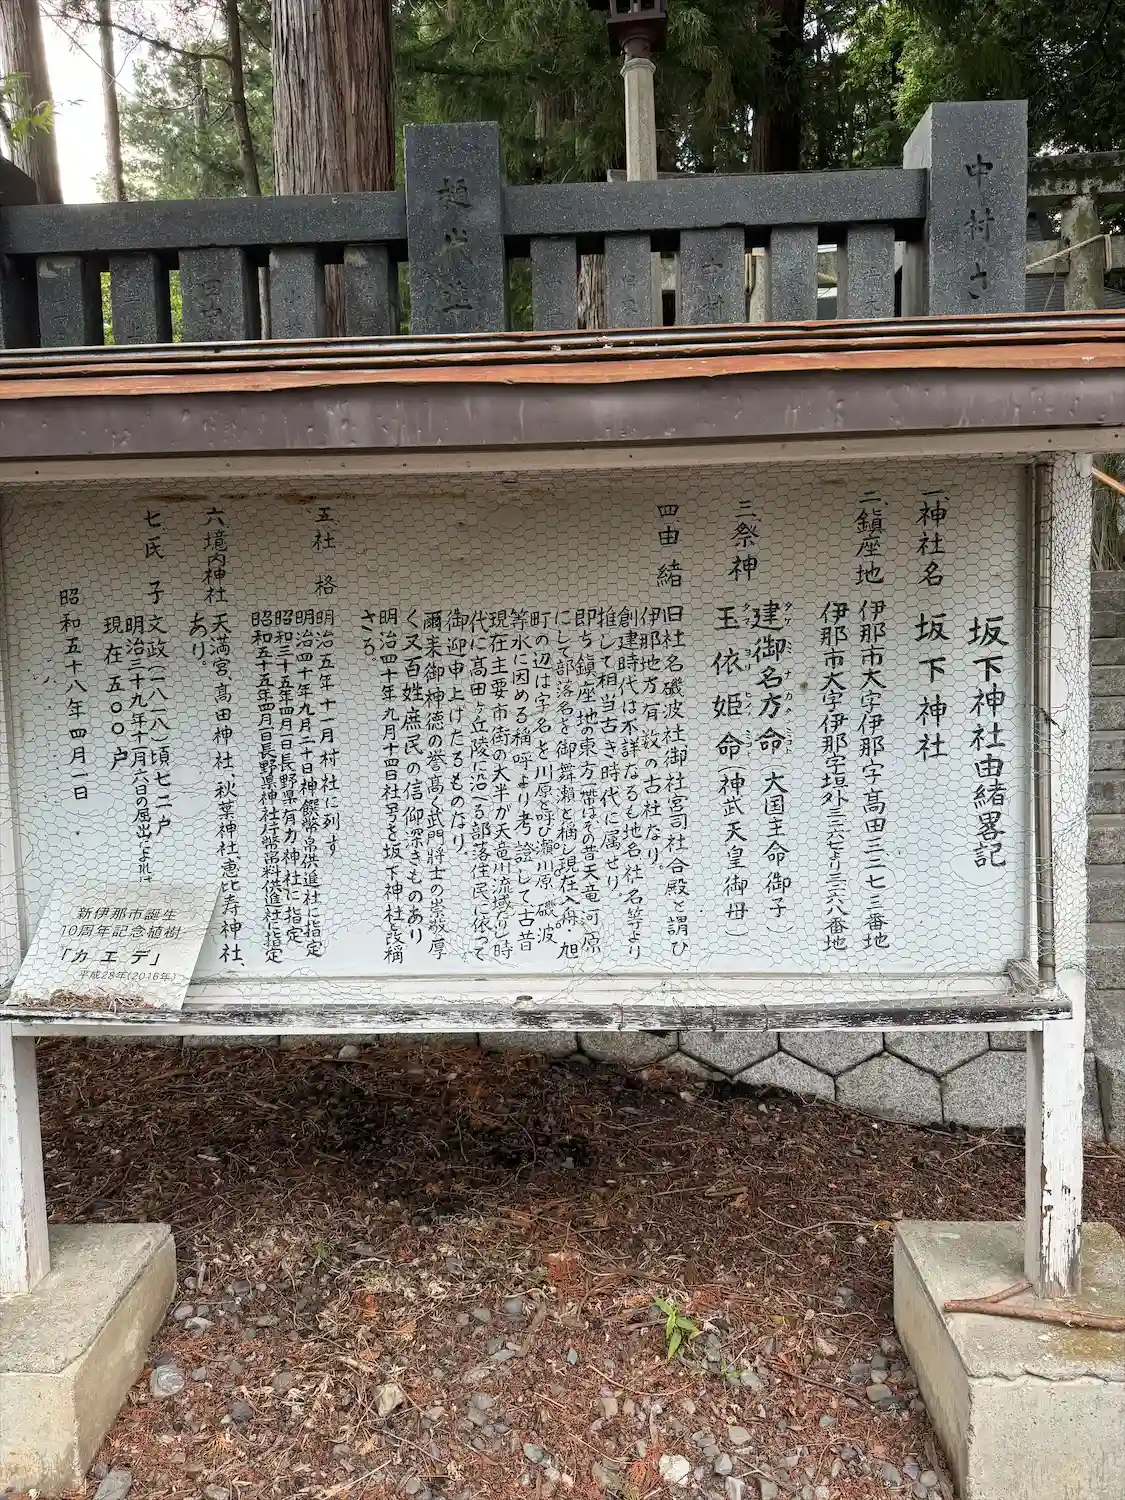 坂下神社由緒畧記
一、神社名 坂下神社
二、鎮座地 伊那市大字伊那字高田三三七三番地
伊那市大字伊那字垣外三三六七より三三六八番地
三、祭神 建御名方命(大国主命御子)
タケミナカタノミコト
玉依姫命(神武天皇御母)
タマヨリヒメノミコト
四、由緒 旧社名磯波社御社宮司社合殿と謂ひ
伊那地方有数の古社なり。
創建時代は不詳なるも地名社名等より
推して相当古き時代に属せり。
即ち鎮座地の東方一帯はその昔天竜河原
にして部落名を御舞瀬と稱し現在入舟・旭
町の辺は字名を川原と呼び瀬川原、磯波
等水に因める稱呼より考證して古昔
現在主要市街の大半が天竜川流域たりし時
代に髙田ヶ丘陵に沿へる部落住民に依って
御迎申上げたるものなり
爾来御神徳の誉高く武門將士の崇敬厚
く又百姓庶民の信仰深きものあり
明治四十年九月十四日社号を坂下神社と改稱
さる。
五、社格 明治五年十一月村社に列す
明治四十年九月二十日神饌幣帛供進社に指定
昭和三十五年四月一日長野県有力神社に指定
昭和五十五年四月一日長野県神社庁幣帛料供進社に指定
六、境内神社 天満宮、髙田神社、秋葉神社、恵比寿神社、
あり。
七、氏子 文政(一八一八)頃七二戸
明治三十九年十月六日の届出によれば
現在五〇〇戸
昭和五十八年四月一日
新伊那市誕生
10周年記念植樹
「カエデ」
平成28年(2016年)
中村き
田中
中村